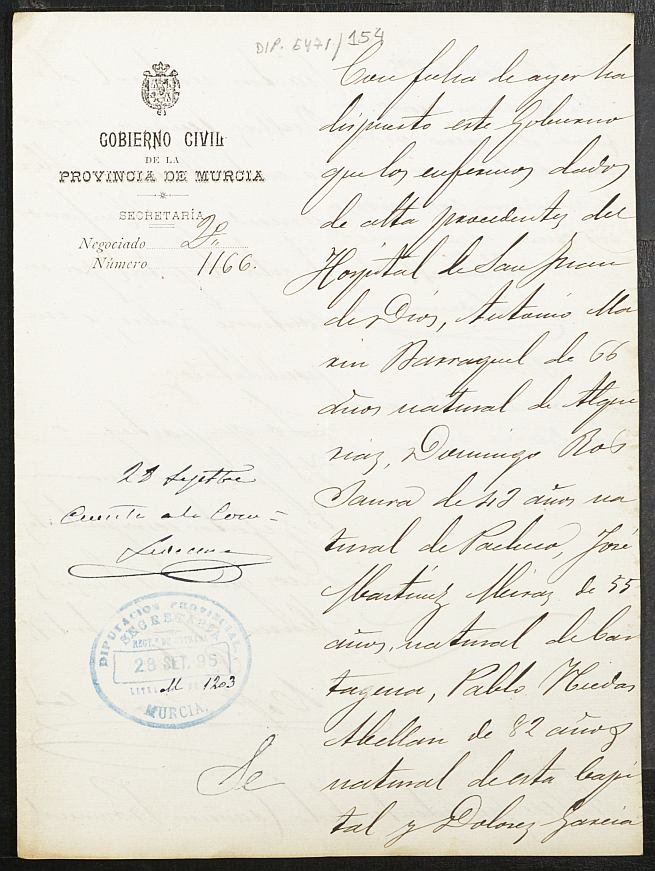 DIP. 6471/154
GOBIERNO CIVIL
DE LA
PROVINCIA DE MURCIA
SECRETARÍA
Negociado 2º
Número 1166.
Con fecha de ayer ha
dispuesto este Gobierno
que los enfermos dados
de alta procedentes del
Hospital de San Juan
de Dios, Antonio Ma
rin Barraquel de 66
años natural de Alque
rias, Domingo Ros
Saura de 42 años na
tural de Pacheco, José
Martinez de 55
años, natural de Car
tagena, Pablo
Abellan de 82 años
natural de esta Capi
tal y Dolores Garcia
28 Septbre
Cuenta a la Com=
DIPUTACION PROVINCIAL
SECRETARIA
REGT.º DE ENTRADA
28 SET. 95
M 1203
MURCIA.
Se